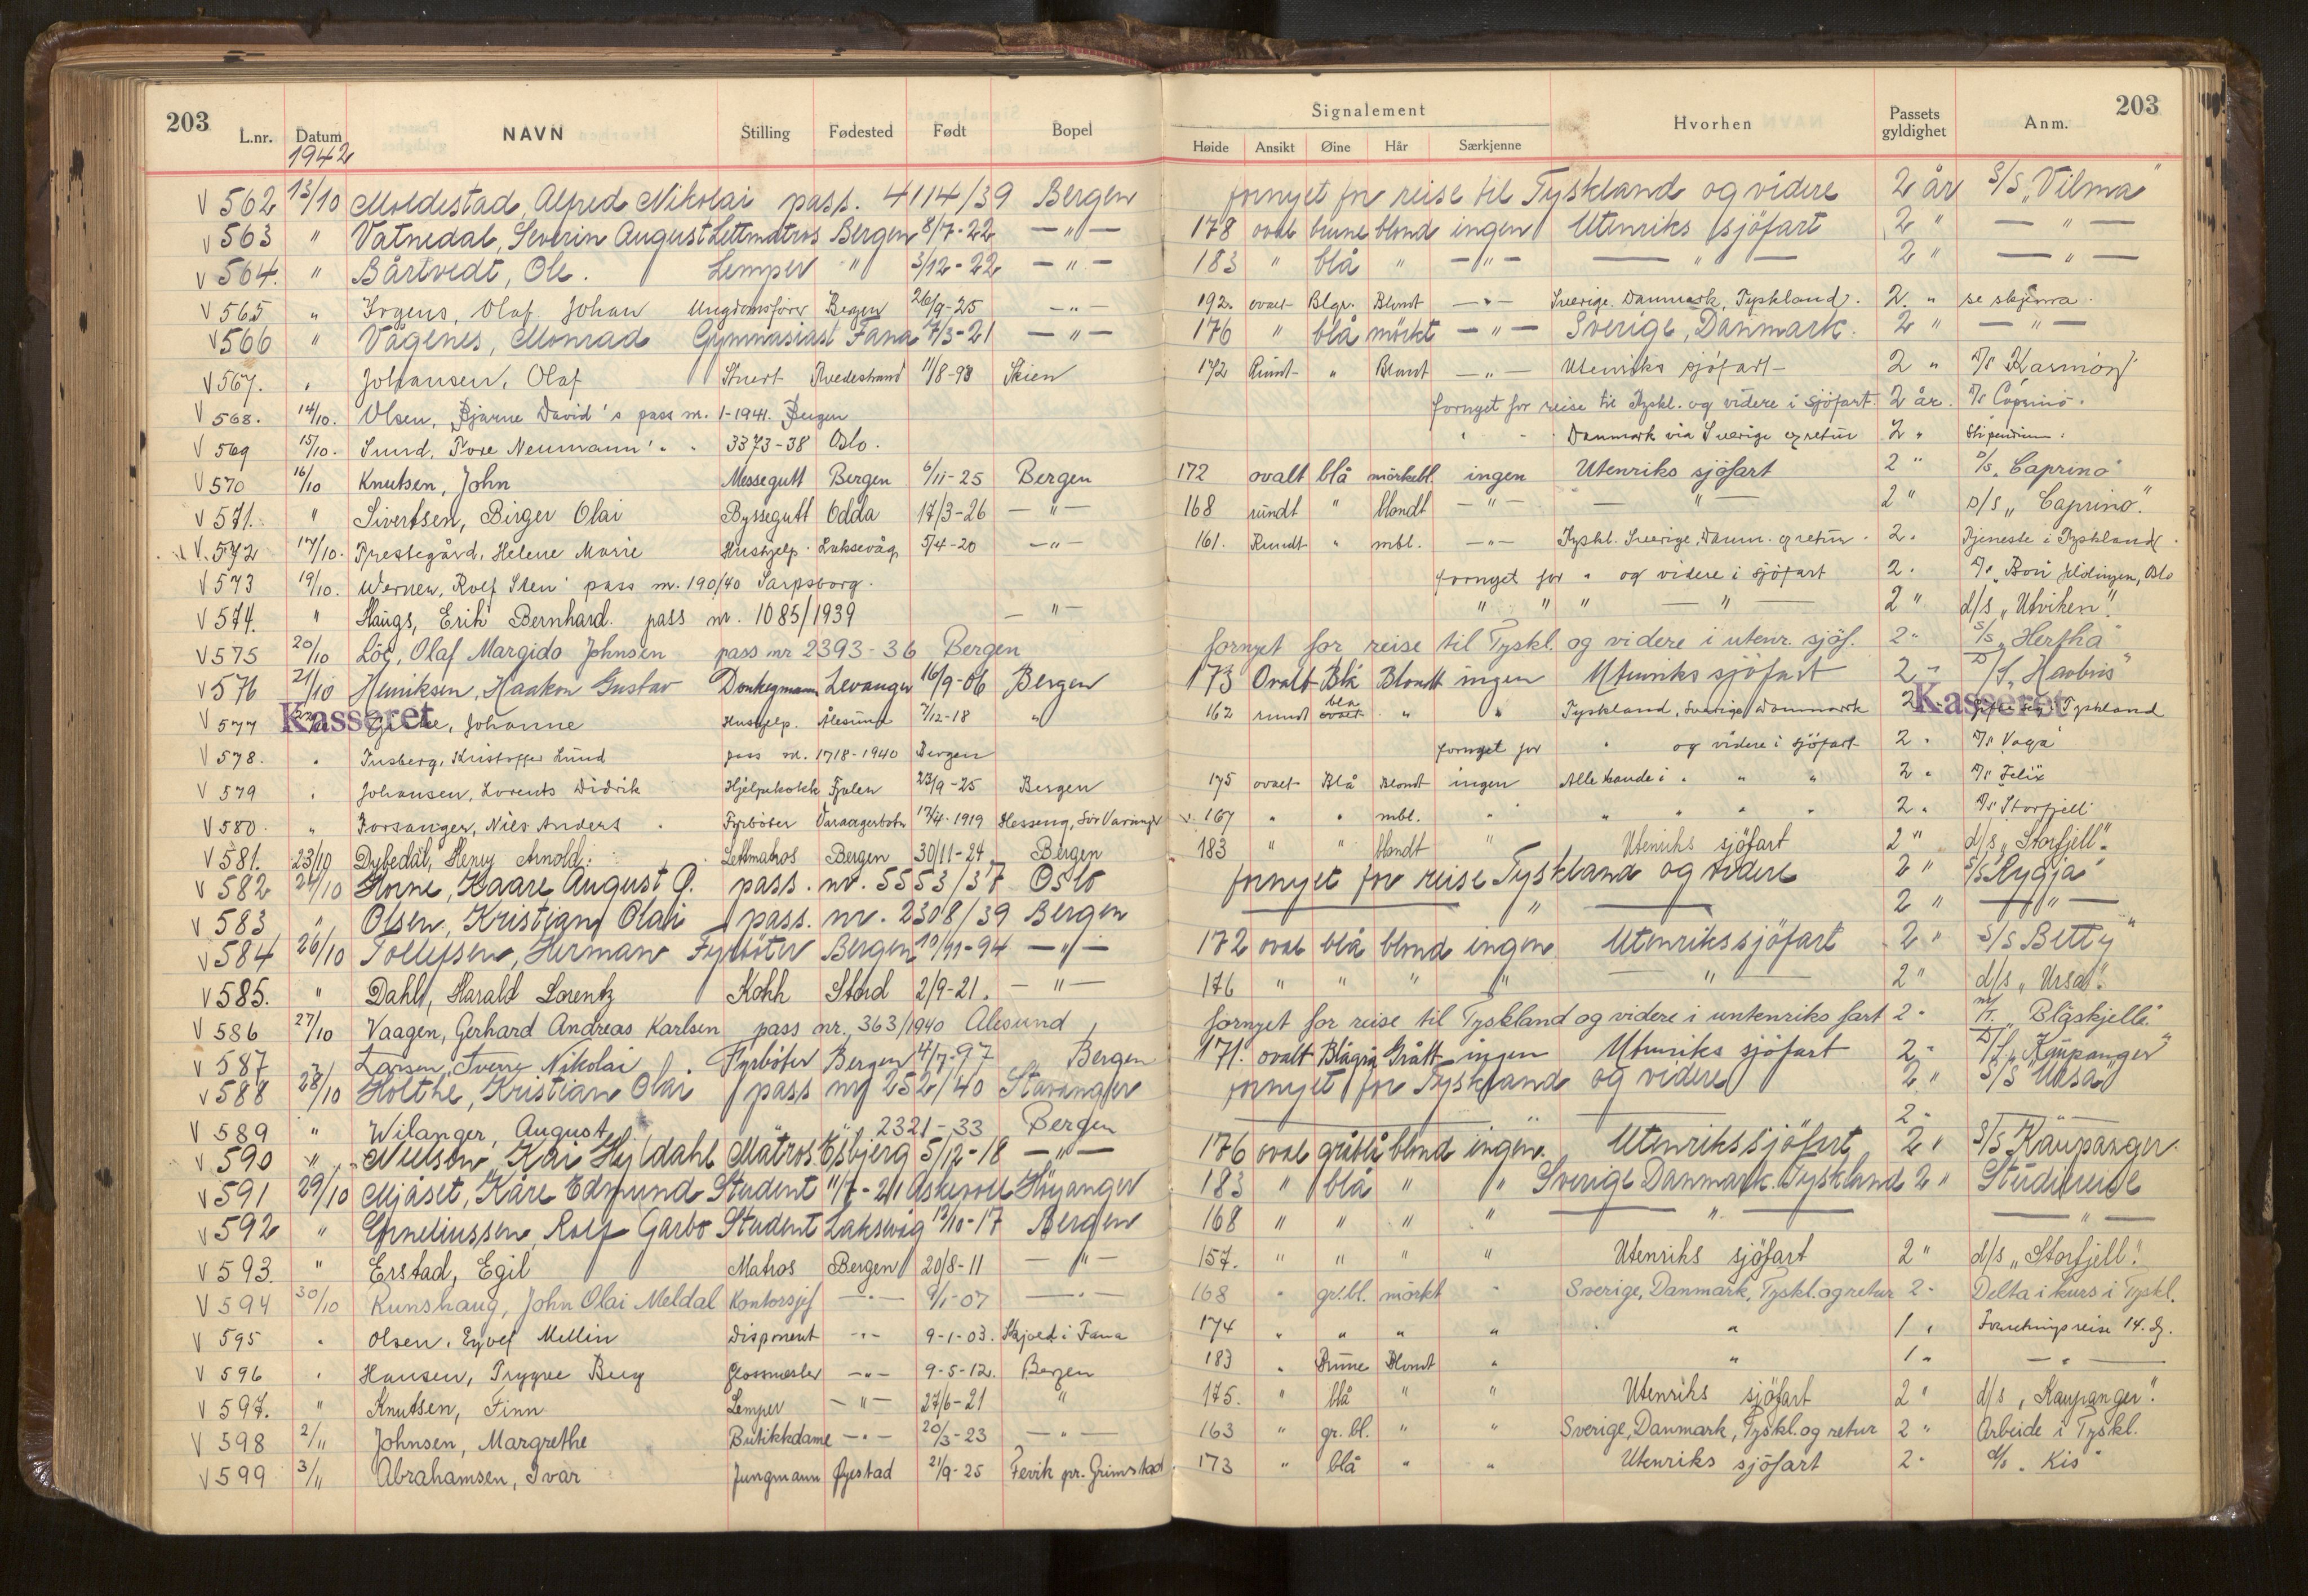 203
203
L.nr. Datum NAVN Stilling Fødested Født Bopel Signalement Hvorhen Passets gyldighet Anm.
Høide Ansikt Øine Hår Særkjenne
1942
V 562 13/10 Moldestad, Alfred Nikolai pass. 4114/39 Bergen fornyet for reise til Tyskland og videre 2 år S/S „Vilma"
V 563 " Vatnedal, Severin August Lettmatros Bergen 8/7-22 — " — 178 oval brune blond ingen Utenriks sjöfart 2 " — " —
V 564. " Bårtvedt, Ole. Lemper " 3/12-22 — " — 183 " blå " — " — — " — 2 " — " —
V 565 " Irgens, Olaf Johan Ungdomsfører Bergen 26/9-25 — " — 192. ovalt Blgr. Blondt — " — Sverige. Danmark, Tyskland. 2 " se skjema.
V 566 " Vågenes, Monrad Gymnasiast Fana 7/3-21 — " — 176 " blå mörkt — " — Sverige, Danmark. 2 " — " —
V 567. " Johansen, Olaf Stuert Tvedestrand 11/8-98 Skien 172 Rundt " Blondt — " — Utenriks sjöfart 2 "
V 568. 14/10. Olsen, Bjarne David's pass nr. 1-1941. Bergen fornyet for reise til Tyskl. og videre i sjöfart. 2 år. D/S Caprino.
V 569 15/10. Sund, Tore Neumann' " " 3373-38 Oslo. " " Danmark via Sverige og retur 2 " Stipendium.
V 570 16/10 Knutsen, John Messegutt Bergen 6/11-25 Bergen 172 ovalt blå mörkebl. ingen Utenriks sjöfart 2 " D/S. „Caprino"
V 571. " Sivertsen, Birger Olai Byssegutt Odda 17/3-26 — " — 168 rundt " blondt — " — — " — 2 " D/S „Caprino".
V. 572 17/10. Prestegård, Helene Marie Hushjelp. Laksevåg 5/4-20 — " — 161. Rundt " mbl. — " — Tyskl. Sverige, Danm. og retur. 2 " Tjeneste i Tyskland.
V 573 19/10. Werner, Rolf Sten' pass nr. 190/40 Sarpsborg. fornyet for " og videre i sjöfart 2 "
V 574. " Haugs, Erik Bernhard. pass nr. 1085/1939 — " — " " " — " — 2 " d/s „Utviken".
V 575 20/10 Löe, Olaf Margido Johnsen pass nr 2393-36 Bergen fornyet for reise til Tyskl. og videre i utenr. sjöf. 2 " S/S „Hertha"
V 576 21/10 Henriksen, Haakon Gustav Donkeymann Levanger 16/9-06 Bergen 173 Ovalt Blå Blondt ingen Utenriks sjöfart 2 "
V 577 Kasseret Johanne Hushjelp. Ålesund 7/12-18 " 162 rundt blå ovalt " " Tyskland, Sverige, Danmark 2 Kasseret Tyskland
V 578. " Insberg, Kristoffer Lund pass nr. 1718-1940 Bergen fornyet for " og videre i sjöfart 2 " D/S Vaga
V 579 " Johansen, Lorents Didrik Hjelpekokk Fjalen 23/9-25 Bergen 175 ovalt Blå Blondt ingen Alle lande i " " " 2 " D/S Felix
V 580. " Porsanger, Nils Anders Fyrböter Varangerbotn 17/4-1919 Hesseng, Sör Varanger 167 " " mbl. " " " " " 2 " D/S Storfjell
V 581. 23/10 Dybedal, Henry Arnold. Lettmatros Bergen 30/11-24 Bergen 183 " " blondt " Utenriks sjöfart 2 " d/s „Storfjell".
V 582 24/10 Horne, Kaare August O. pass. nr. 5553/37 Oslo fornyet for reise Tyskland og videre 2 " S/S Rygja
V 583 " Olsen, Kristian Olai pass. nr. 2308/39 Bergen — " — 2 " — " —
V 584 26/10 Tollefsen, Herman Fyrböter Bergen 10/11-94 — " — 172 oval blå blond ingen Utenrikssjöfart 2 " S/S Betty"
V 585. " Dahl, Harald Lorentz Kokk Stord 2/9-21. — " — 176 " " " " — " — 2 " d/s „Ursa".
V 586 27/10 Vaagen, Gerhard Andreas Karlsen pass nr. 363/1940 Ålesund fornyet for reise til Tyskland og videre i untenriks fart 2 " „Blåskjell".
V 587 Larsen, Sverre Nikolai Fyrböter Bergen 4/7-97 Bergen 171. ovalt Blågrå Grått ingen Utenriks sjöfart 2 " „Kaupanger"
V 588 28/10 Holthe, Kristian Olai pass nr 252/40 Stavanger fornyet for Tyskland og videre 2 " S/S „Ursa"
V 589 " Wilanger, August 2321-33 Bergen — " — 2 "
V. 590 " Nielson Kai Hyldahl Matros Esbjerg 5/12-18 — " — 176 oval gråblå blond ingen. Utenrikssjöfart 2 " S/S Kaupanger.
V 591 29/10 Mjåset, Kåre Edmund Student 11/7-21 Askevoll Höyanger 183 " blå " " Sverige Danmark. Tyskland 2 " Studiereise
V 592 " Corneliussen, Rolf Garbo Student Laksevåg 12/10-17 Bergen 168 " " " " — " — — " —
V 593. " Erstad, Egil Matros Bergen 20/8-11 — " — 157. " " " " Utenriks sjöfart 2 " d/s „Storfjell".
V 594 30/10 Runshaug, John Olai Meldal Kontorsjef — " — 9/1-07 — " — 168 " gr.bl. mörkt " Sverige, Danmark, Tyskl. og retur 2 " Delta i kurs i Tyskl.
V 595 " Olsen, Eyolf Mellin Disponent — " — 9-1-03. Skjold i Fana 174 " " " " " 1 " Forretningsreise 14. dg.
V 596 " Hansen, Trygve Berg Glassmester — " — 9-5-12. Bergen 183 " Brune Blondt " " 1 " — " —
V 597. " Knutsen, Finn Lemper — " — 27/6-21 " 175. " blå " " Utenriks sjöfart 2 " d/s „Kaupanger".
V 598 2/11 Johnsen, Margrethe Butikkdame — " — 20/3-23 — " — 163 " gr. bl. " " Sverige, Danmark, Tyskl. og retur 2 " Arbeide i Tyskl.
V 599 3/11 Abrahamsen, Ivar Jungmann Øyestad 21/9-25 Fevik pr. Grimstad 173 " blå " " Utenriks sjöfart 2 " d/s „Kis"